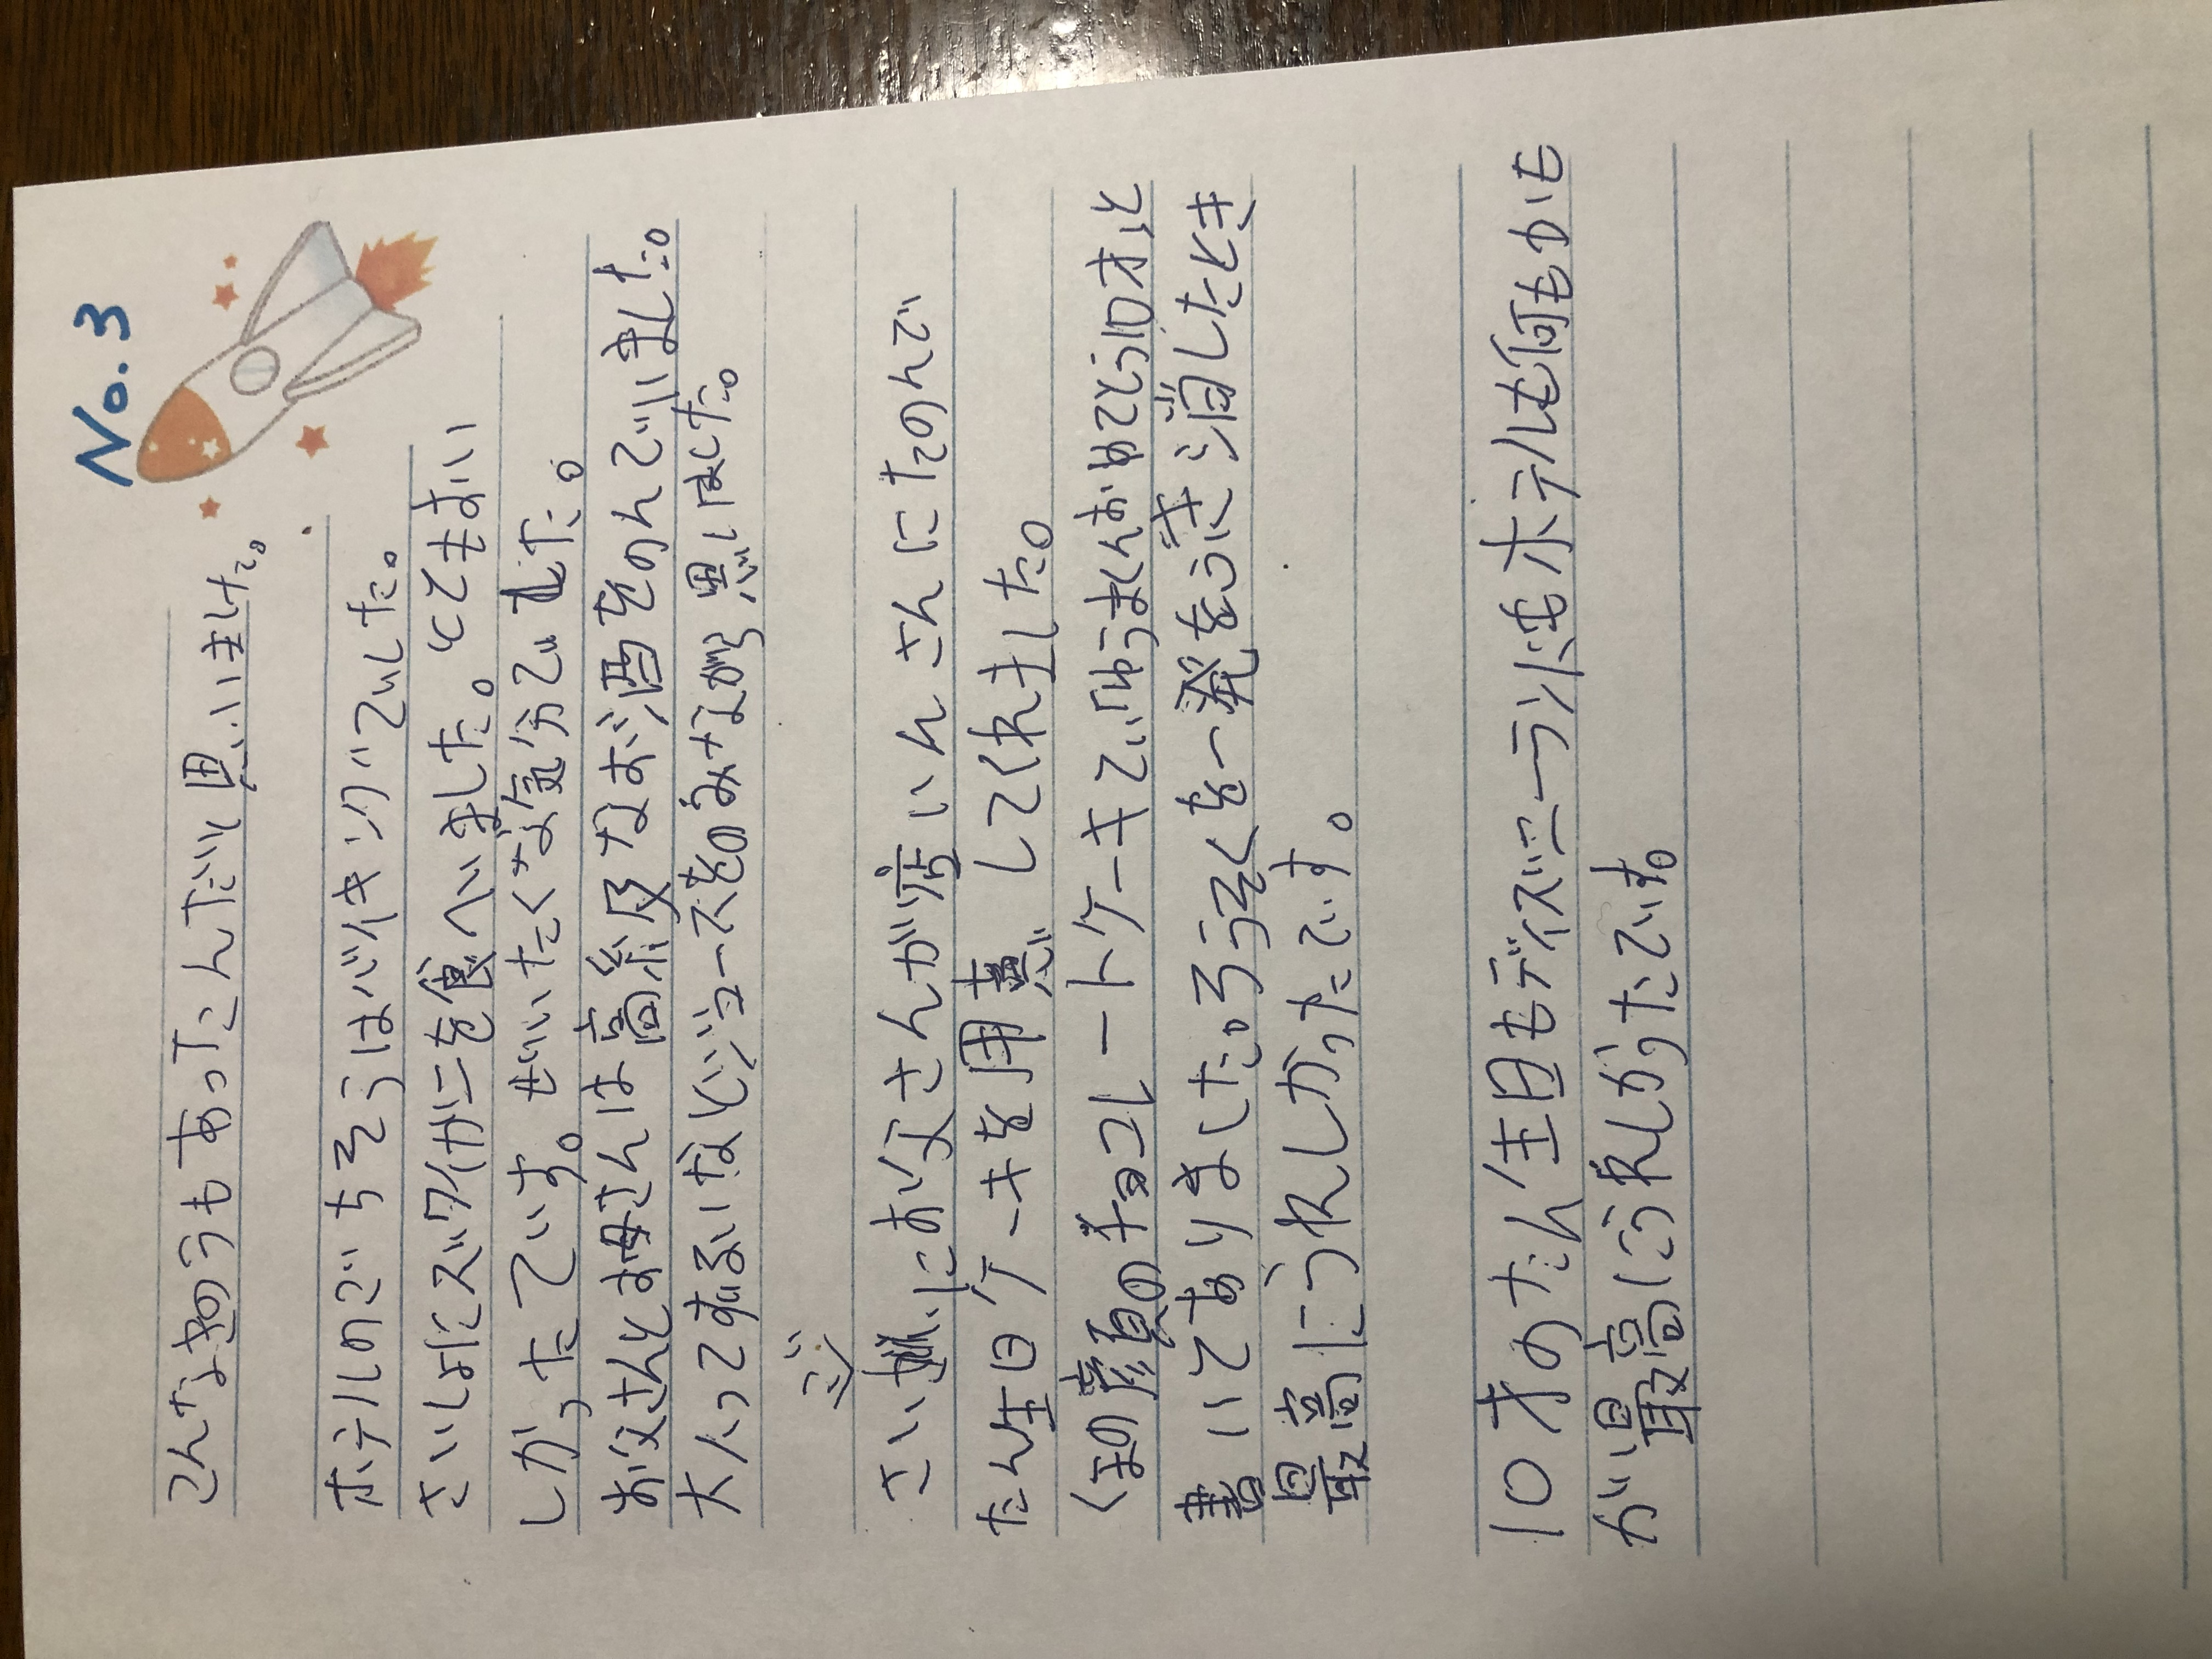 No.3
こんなきのうもあったんだと思いました。
ホテルのごちそうはバイキングでした。
さいしょにズワイガニを食べました。とてもおい
しかったです。ぜいたくな気分でした。
お父さんとお母さんは高級なお酒をのんでいました。
大人ってずるいなとジュースをのみながら思いました。
さいごにお父さんが店いんさんにたのんで
たん生日ケーキを用意してくれました。
くまの顔のチョコレートケーキで、「ゆうまくんおめでとう10才」と
書いてありました。ろうそくを一発でふき消したとき
最高にうれしかったです。
10才のたん生日もディズニーランドもホテルも何もかも
が最高にうれしかったです。